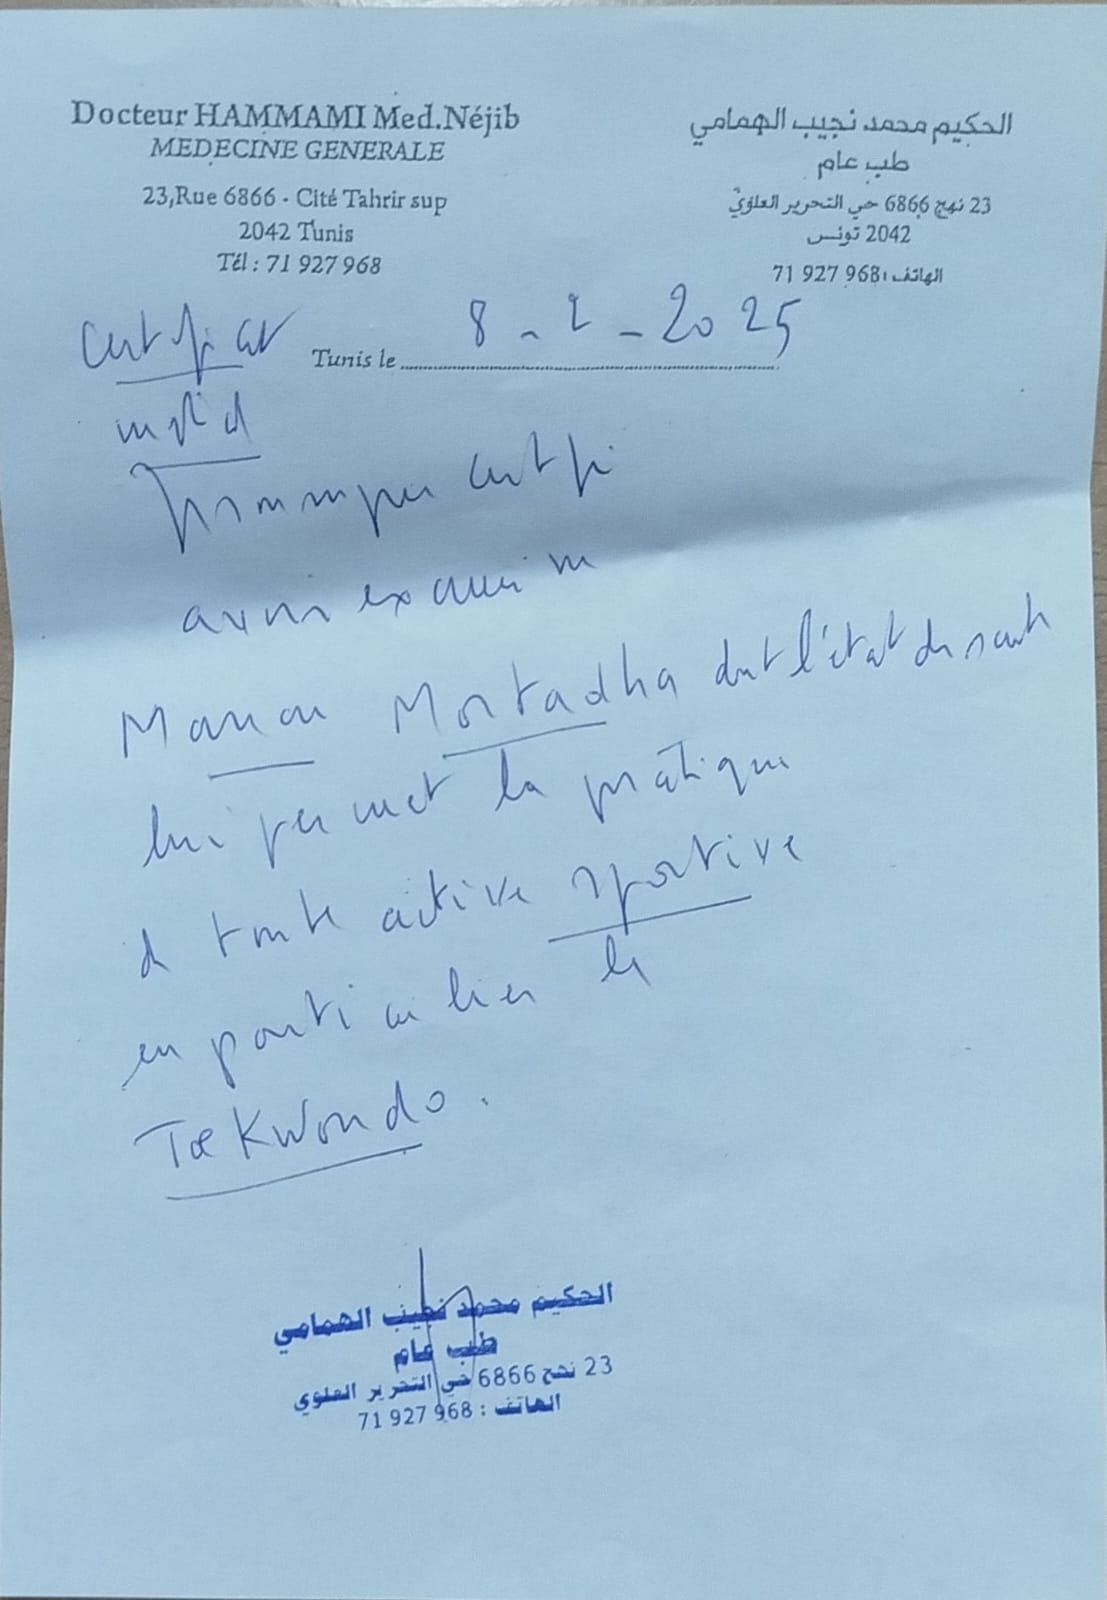 Docteur HAMMAMI Med.Néjib
MEDECINE GENERALE
23,Rue 6866 - Cité Tahrir sup
2042 Tunis
Tél : 71 927 968
الحكيم محمد نجيب الهمامي
طب عام
23 نهج 6866 حي التحرير العلوي
2042 تونس
الهاتف : 71 927 968
Certificat
Tunis le 8 - 2 - 2025
médical
certifie
avoir examiné
Mortadha dont l'état de santé
lui permet la pratique
de toute active sportive
en particulier le
Taekwondo.
الحكيم محمد نجيب الهمامي
طب عام
23 نهج 6866 حي التحرير العلوي
الهاتف : 71 927 968